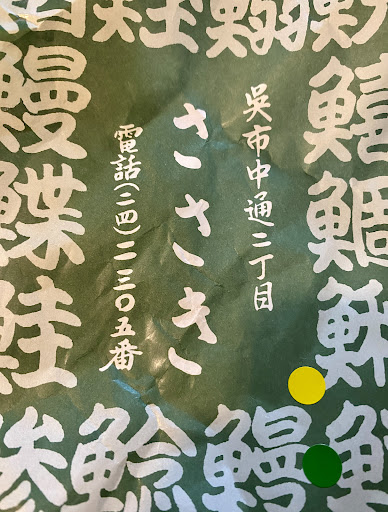 鰯
鱚
鯛
呉市中通二丁目
ささき
電話(二四)二三〇五番
鰻
鰈
鮭
鯵鯰鰻